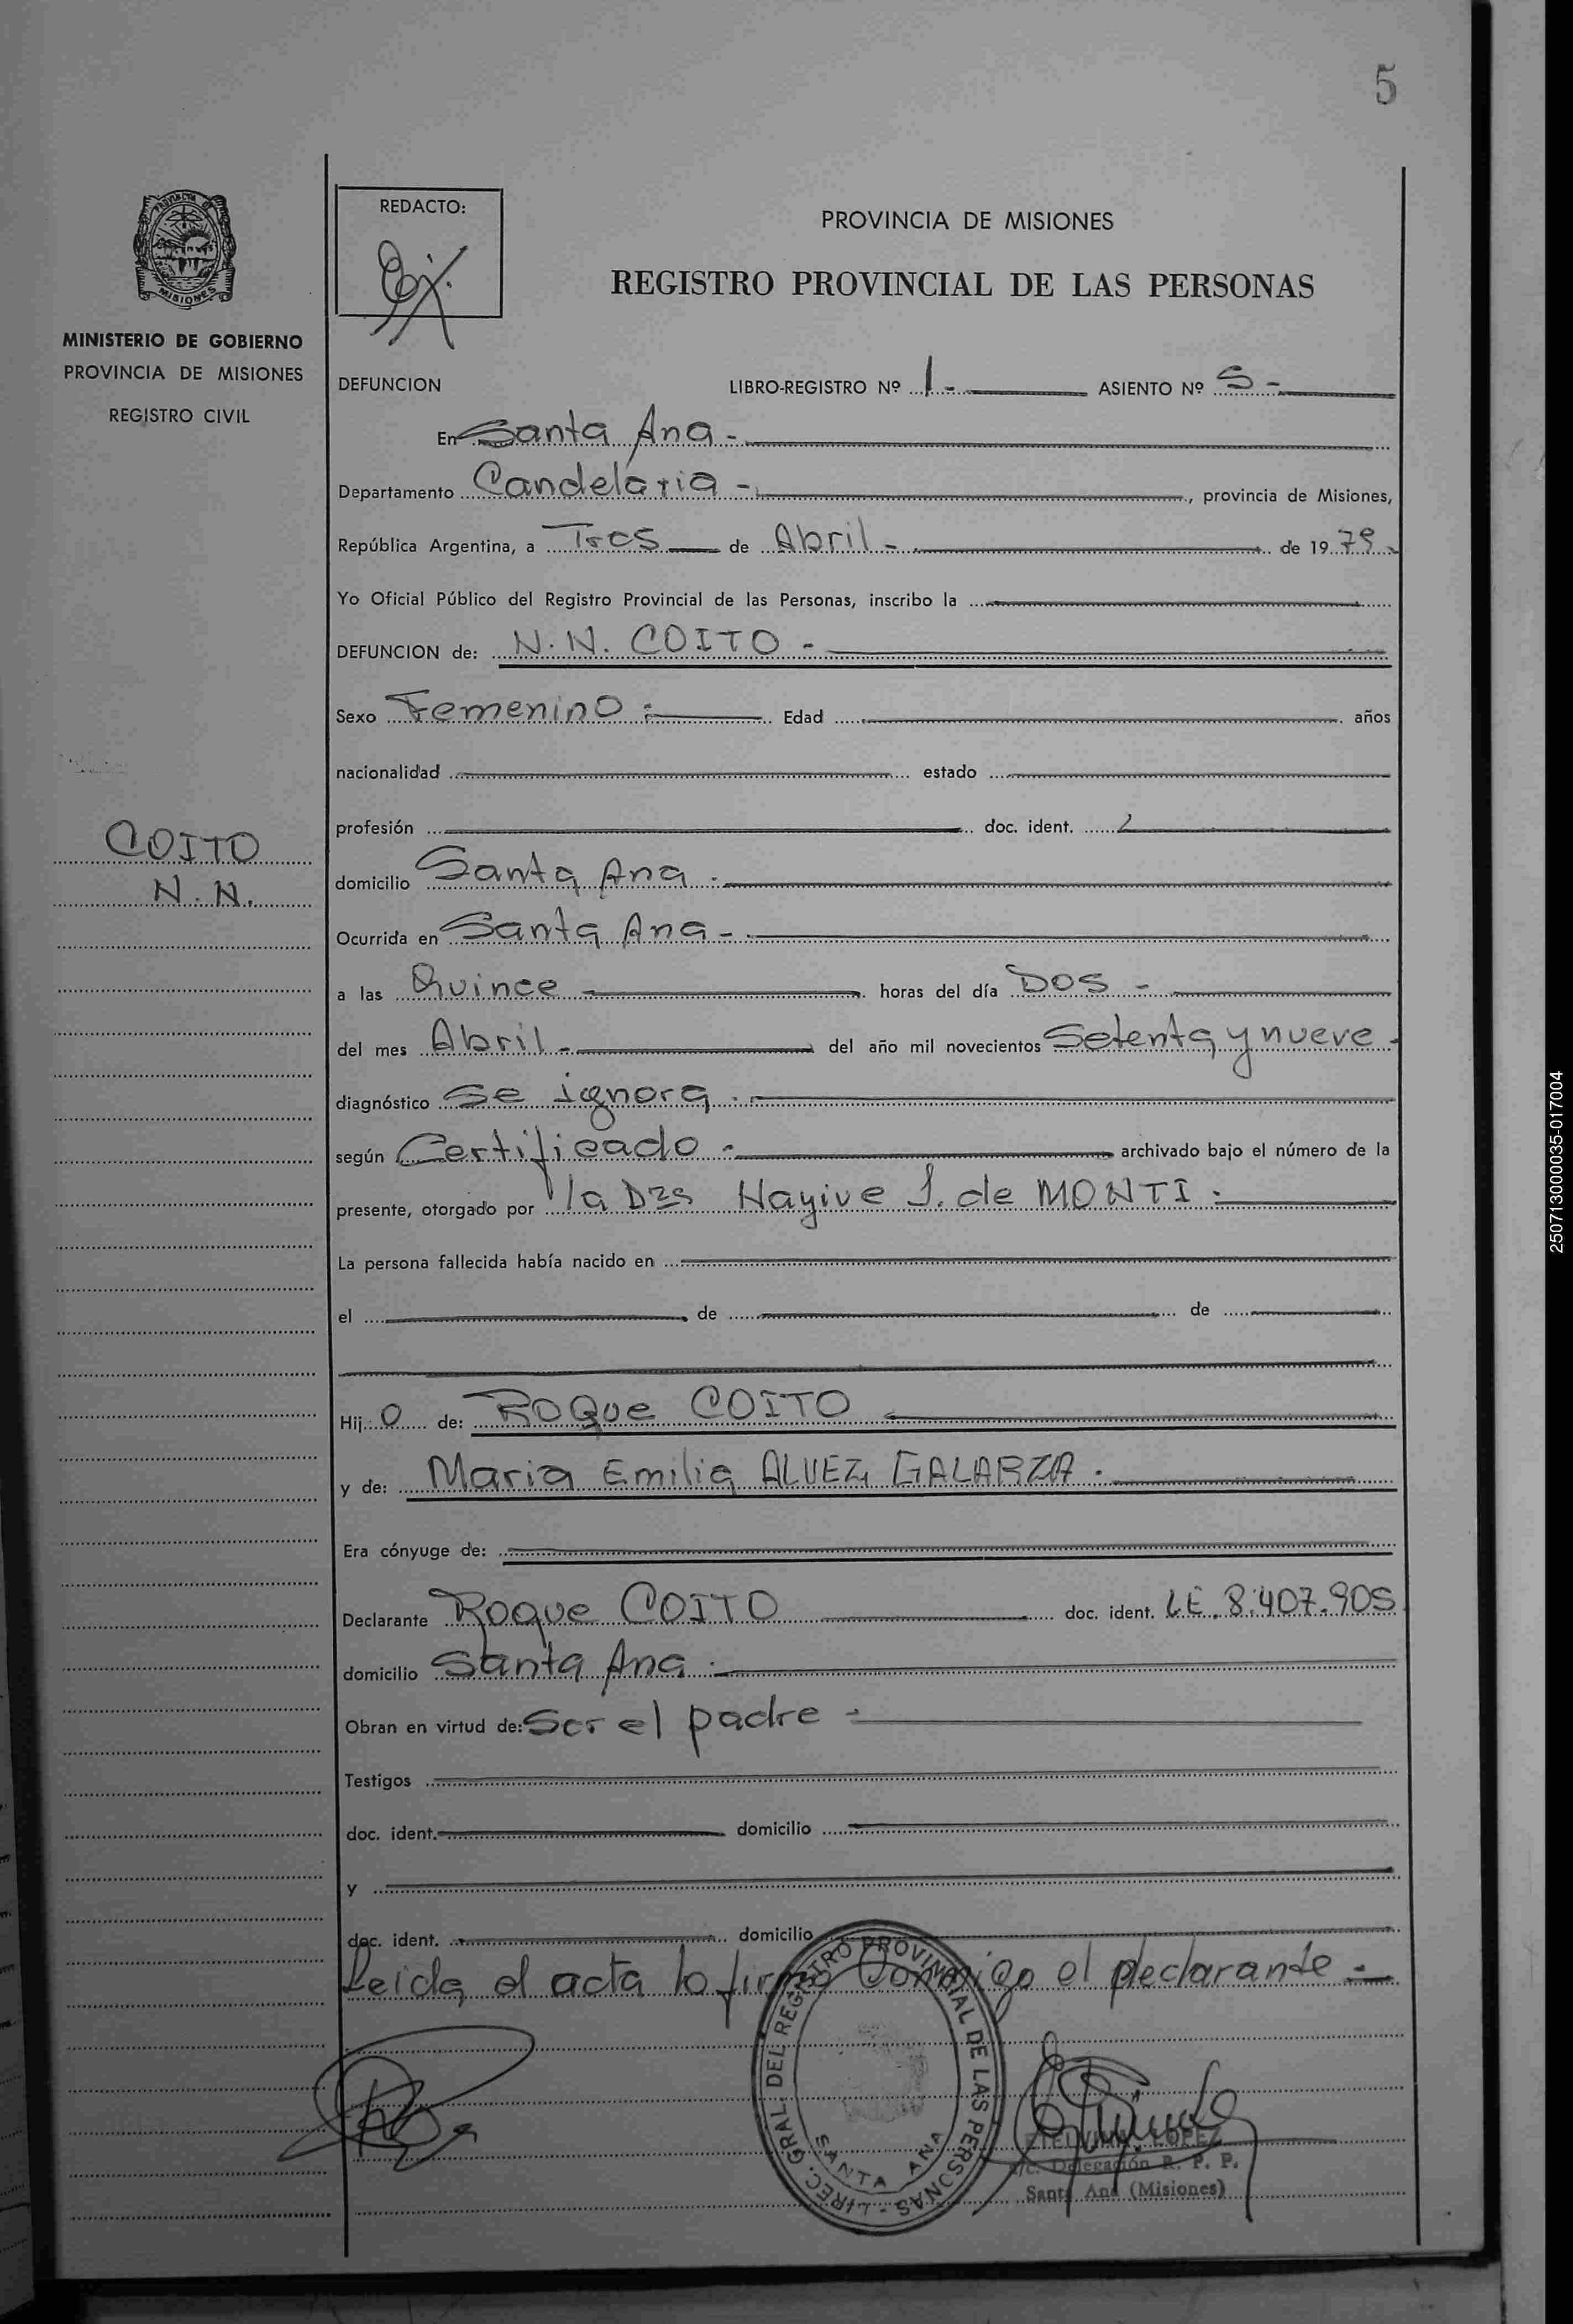 5
REDACTO:
PROVINCIA DE MISIONES
REGISTRO PROVINCIAL DE LAS PERSONAS
MISIONES
MINISTERIO DE GOBIERNO
PROVINCIA DE MISIONES
REGISTRO CIVIL
DEFUNCION LIBRO-REGISTRO Nº 1- ASIENTO Nº 5-
En Santa Ana-
Departamento Candelaria-, provincia de Misiones,
República Argentina, a Tres de Abril- de 1979-
Yo Oficial Público del Registro Provincial de las Personas, inscribo la
DEFUNCION de: N.N. COITO-
Sexo Femenino Edad años
nacionalidad estado
profesión doc. ident.
COITO
N.N.
domicilio Santa Ana.
Ocurrida en Santa Ana-
a las Quince horas del día Dos-
del mes Abril- del año mil novecientos Setenta y nueve-
diagnóstico se ignora.
según Certificado- archivado bajo el número de la
presente, otorgado por la Dra Nayive J. de MONTI.
La persona fallecida había nacido en
el de de
Hijo de: ROQue COITO
y de: Maria Emilia ALVEZ GALARZA.
Era cónyuge de:
Declarante Roque COITO doc. ident. LE.8.407.905
domicilio Santa Ana.
Obran en virtud de: Ser el padre-
Testigos
doc. ident. domicilio
y
doc. ident. domicilio
Leida el acta lo firma Conmigo el declarante-
DIREC. GRAL. DEL REGISTRO PROVINCIAL DE LAS PERSONAS - SANTA ANA
LOPEZ
Delegación R. P. P.
Santa Ana (Misiones)
250713000035-017004